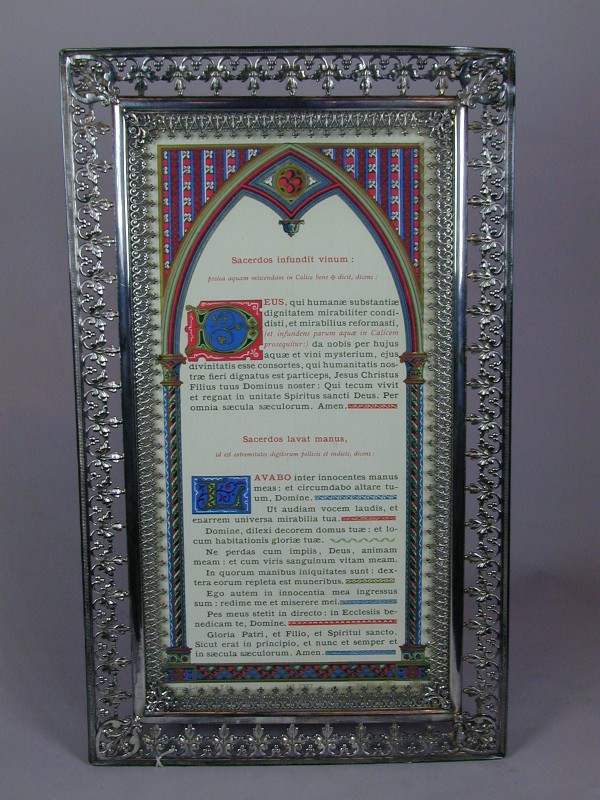 Sacerdos infundit vinum :
postea aquam miscendam in Calice bene ✠ dicit, dicens :
DEUS, qui humanæ substantiæ
dignitatem mirabiliter condi-
disti, et mirabilius reformasti,
(et infundens parum aquæ in Calicem
prosequitur:) da nobis per hujus
aquæ et vini mysterium, ejus
divinitatis esse consortes, qui humanitatis nos-
træ fieri dignatus est particeps, Jesus Christus
Filius tuus Dominus noster : Qui tecum vivit
et regnat in unitate Spiritus sancti Deus. Per
omnia sæcula sæculorum. Amen.
Sacerdos lavat manus,
id est extremitates digitorum pollicis et indicis, dicens :
LAVABO inter innocentes manus
meas : et circumdabo altare tu-
um, Domine.
Ut audiam vocem laudis, et
enarrem universa mirabilia tua.
Domine, dilexi decorem domus tuæ : et lo-
cum habitationis gloriæ tuæ.
Ne perdas cum impiis, Deus, animam
meam : et cum viris sanguinum vitam meam.
In quorum manibus iniquitates sunt : dex-
tera eorum repleta est muneribus.
Ego autem in innocentia mea ingressus
sum : redime me et miserere mei.
Pes meus stetit in directo : in Ecclesiis be-
nedicam te, Domine.
Gloria Patri, et Filio, et Spiritui sancto.
Sicut erat in principio, et nunc et semper et
in sæcula sæculorum. Amen.